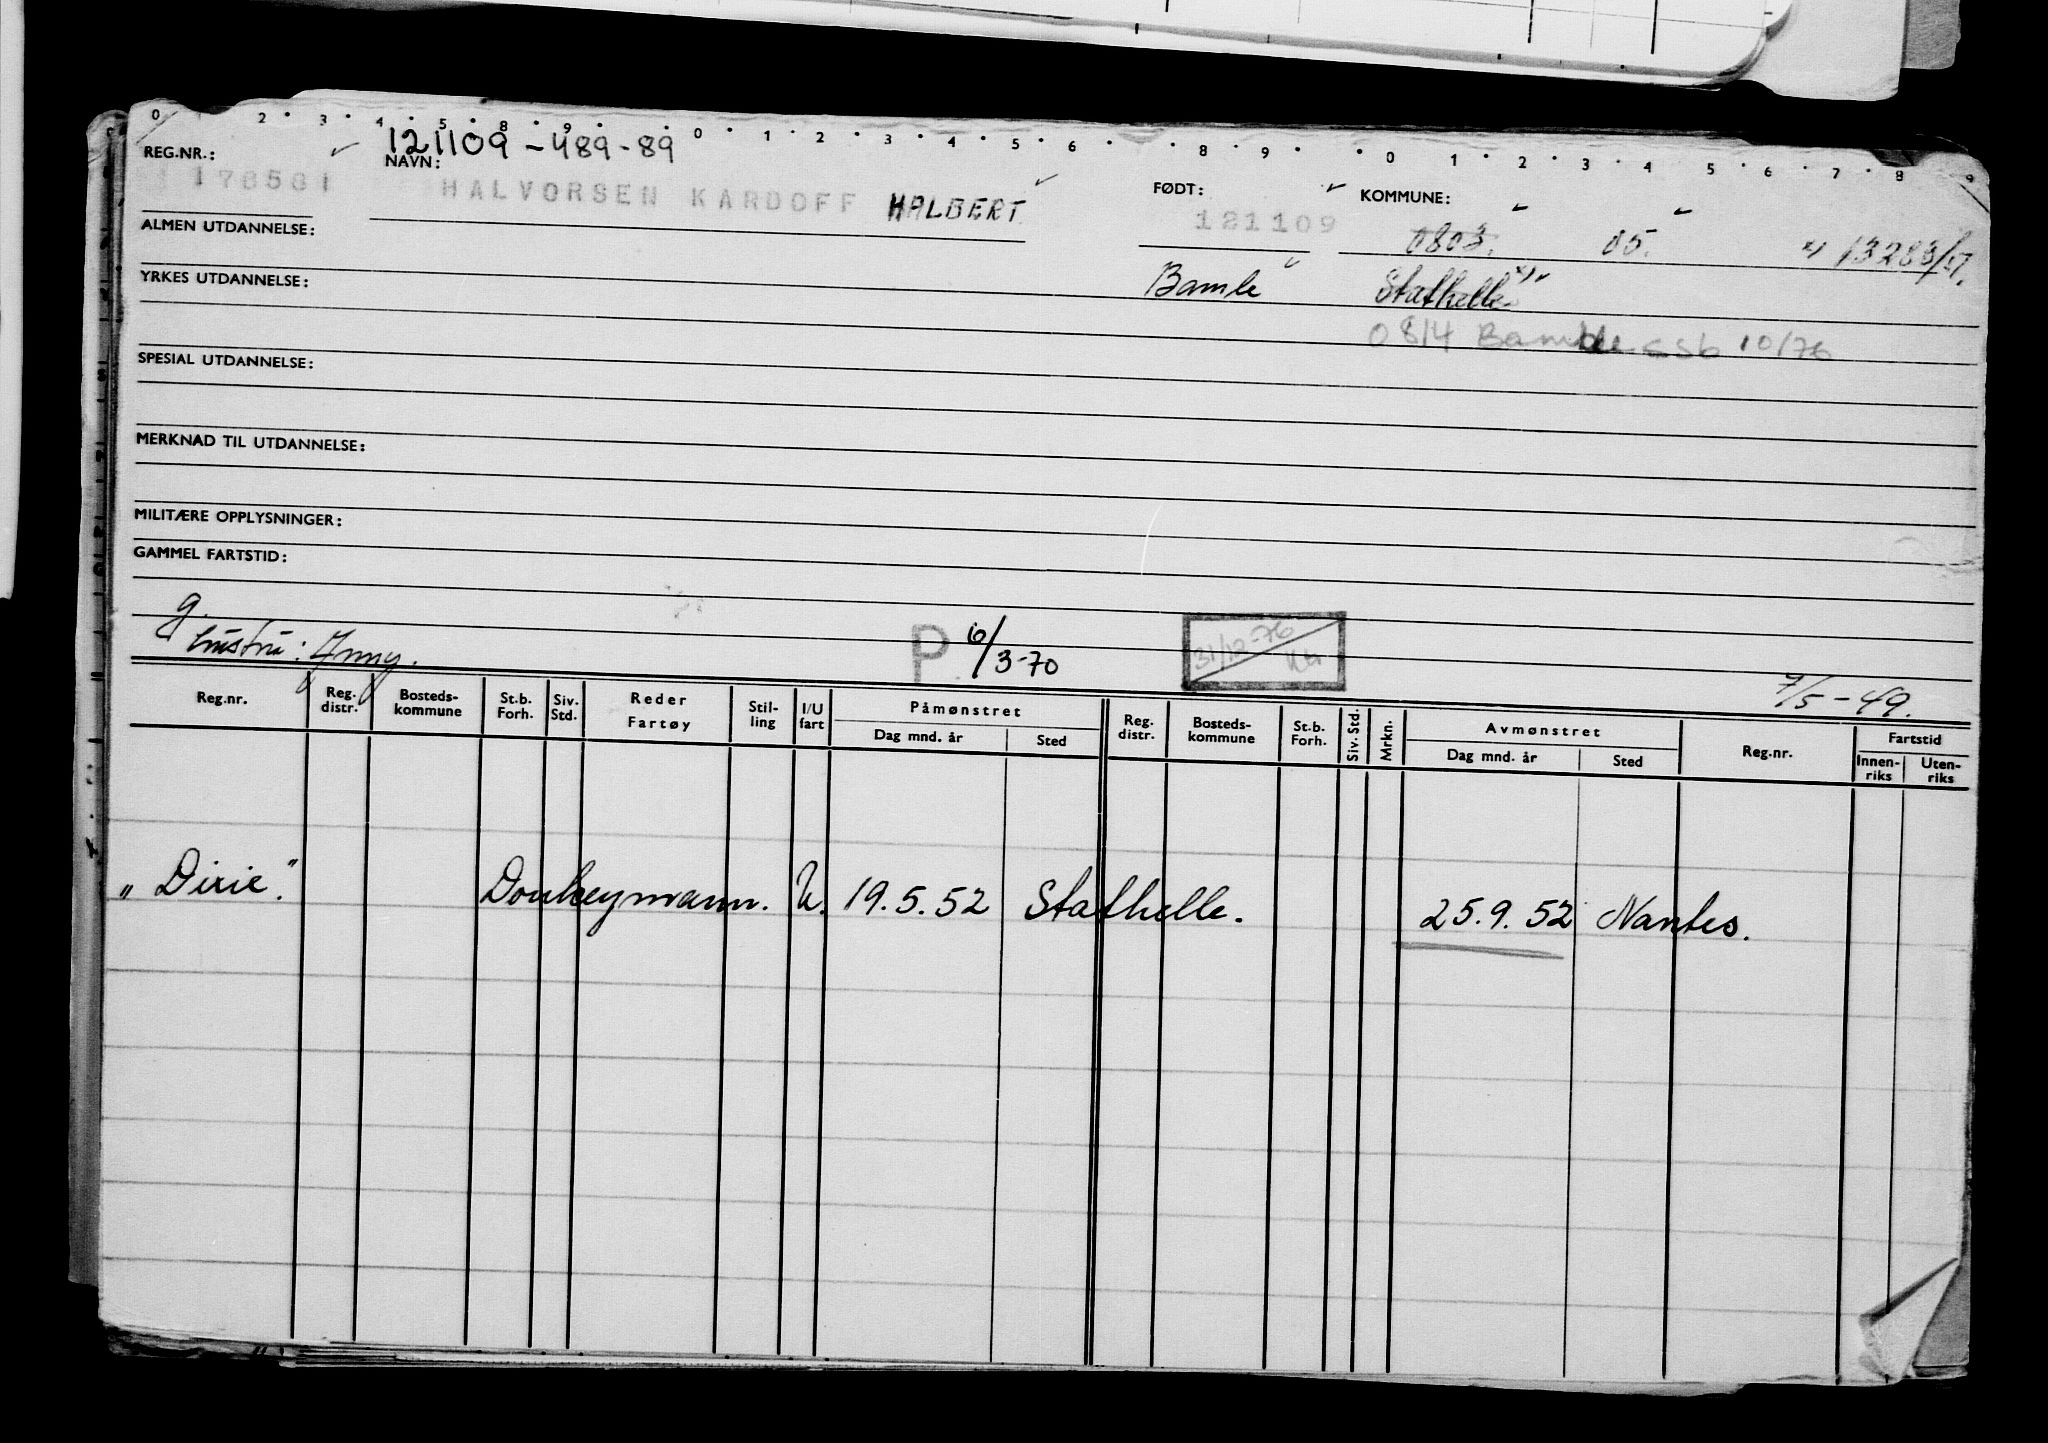 0 2 3 4 5 8 9 0 1 2 3 4 5 6 8 9 0 1 2 3 4 5 6 7 8 9
121109-489-89
REG.NR.: NAVN: FØDT: KOMMUNE:
178581 HALVORSEN KARDOFF HALBERT 121109 0803. 05. 13283/57.
ALMEN UTDANNELSE:
YRKES UTDANNELSE: Bamle Stathelle x)
0814 Bamble SSb 10/76
SPESIAL UTDANNELSE:
MERKNAD TIL UTDANNELSE:
MILITÆRE OPPLYSNINGER:
GAMMEL FARTSTID:
g.
hustru: Jenny. P 6/3-70 31/12-76
7/5-49.
Reg.nr. Reg. distr. Bosteds-kommune St.b. Forh. Siv. Std. Reder Fartøy Stil-ling I/U fart Påmønstret Reg. distr. Bosteds-kommune St.b. Forh. Siv. Std. Mrkn. Avmønstret Reg.nr. Fartstid
Dag mnd. år Sted Dag mnd. år Sted Innen-riks Uten-riks
„Dixie." Donkeymann. U. 19.5.52 Stathelle. 25.9.52 Nantes.